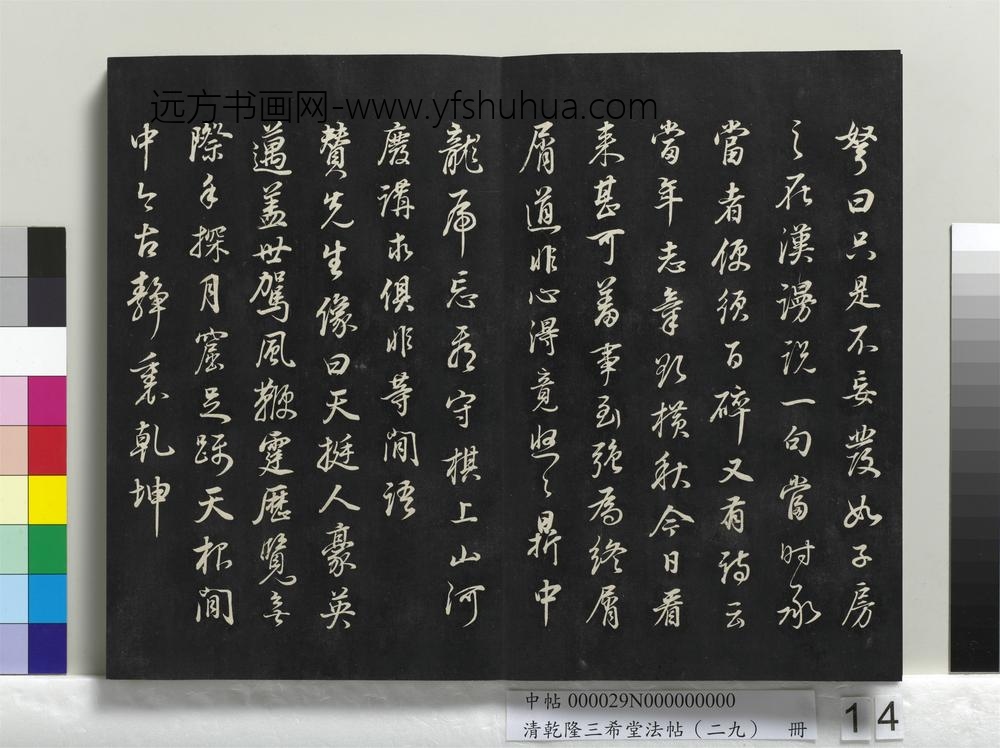 弩曰只是不妄發如子房
之在漢謾說一句當時承
當者便須百碎又有詩云
當年志氣欲橫秋今日看
來甚可羞事到強為終屑
屑道非心得竟悠〻鼎中
龍虎忘看守棋上山河
廢講求俱非等閒語
贊先生像曰天挺人豪英
邁蓋世駕風鞭霆歷覽無
際手探月窟足躡天根閒
中今古靜裏乾坤
远方书画网-www.yfshuhua.com
中帖 000029N000000000
清乾隆三希堂法帖（二九） 冊
14